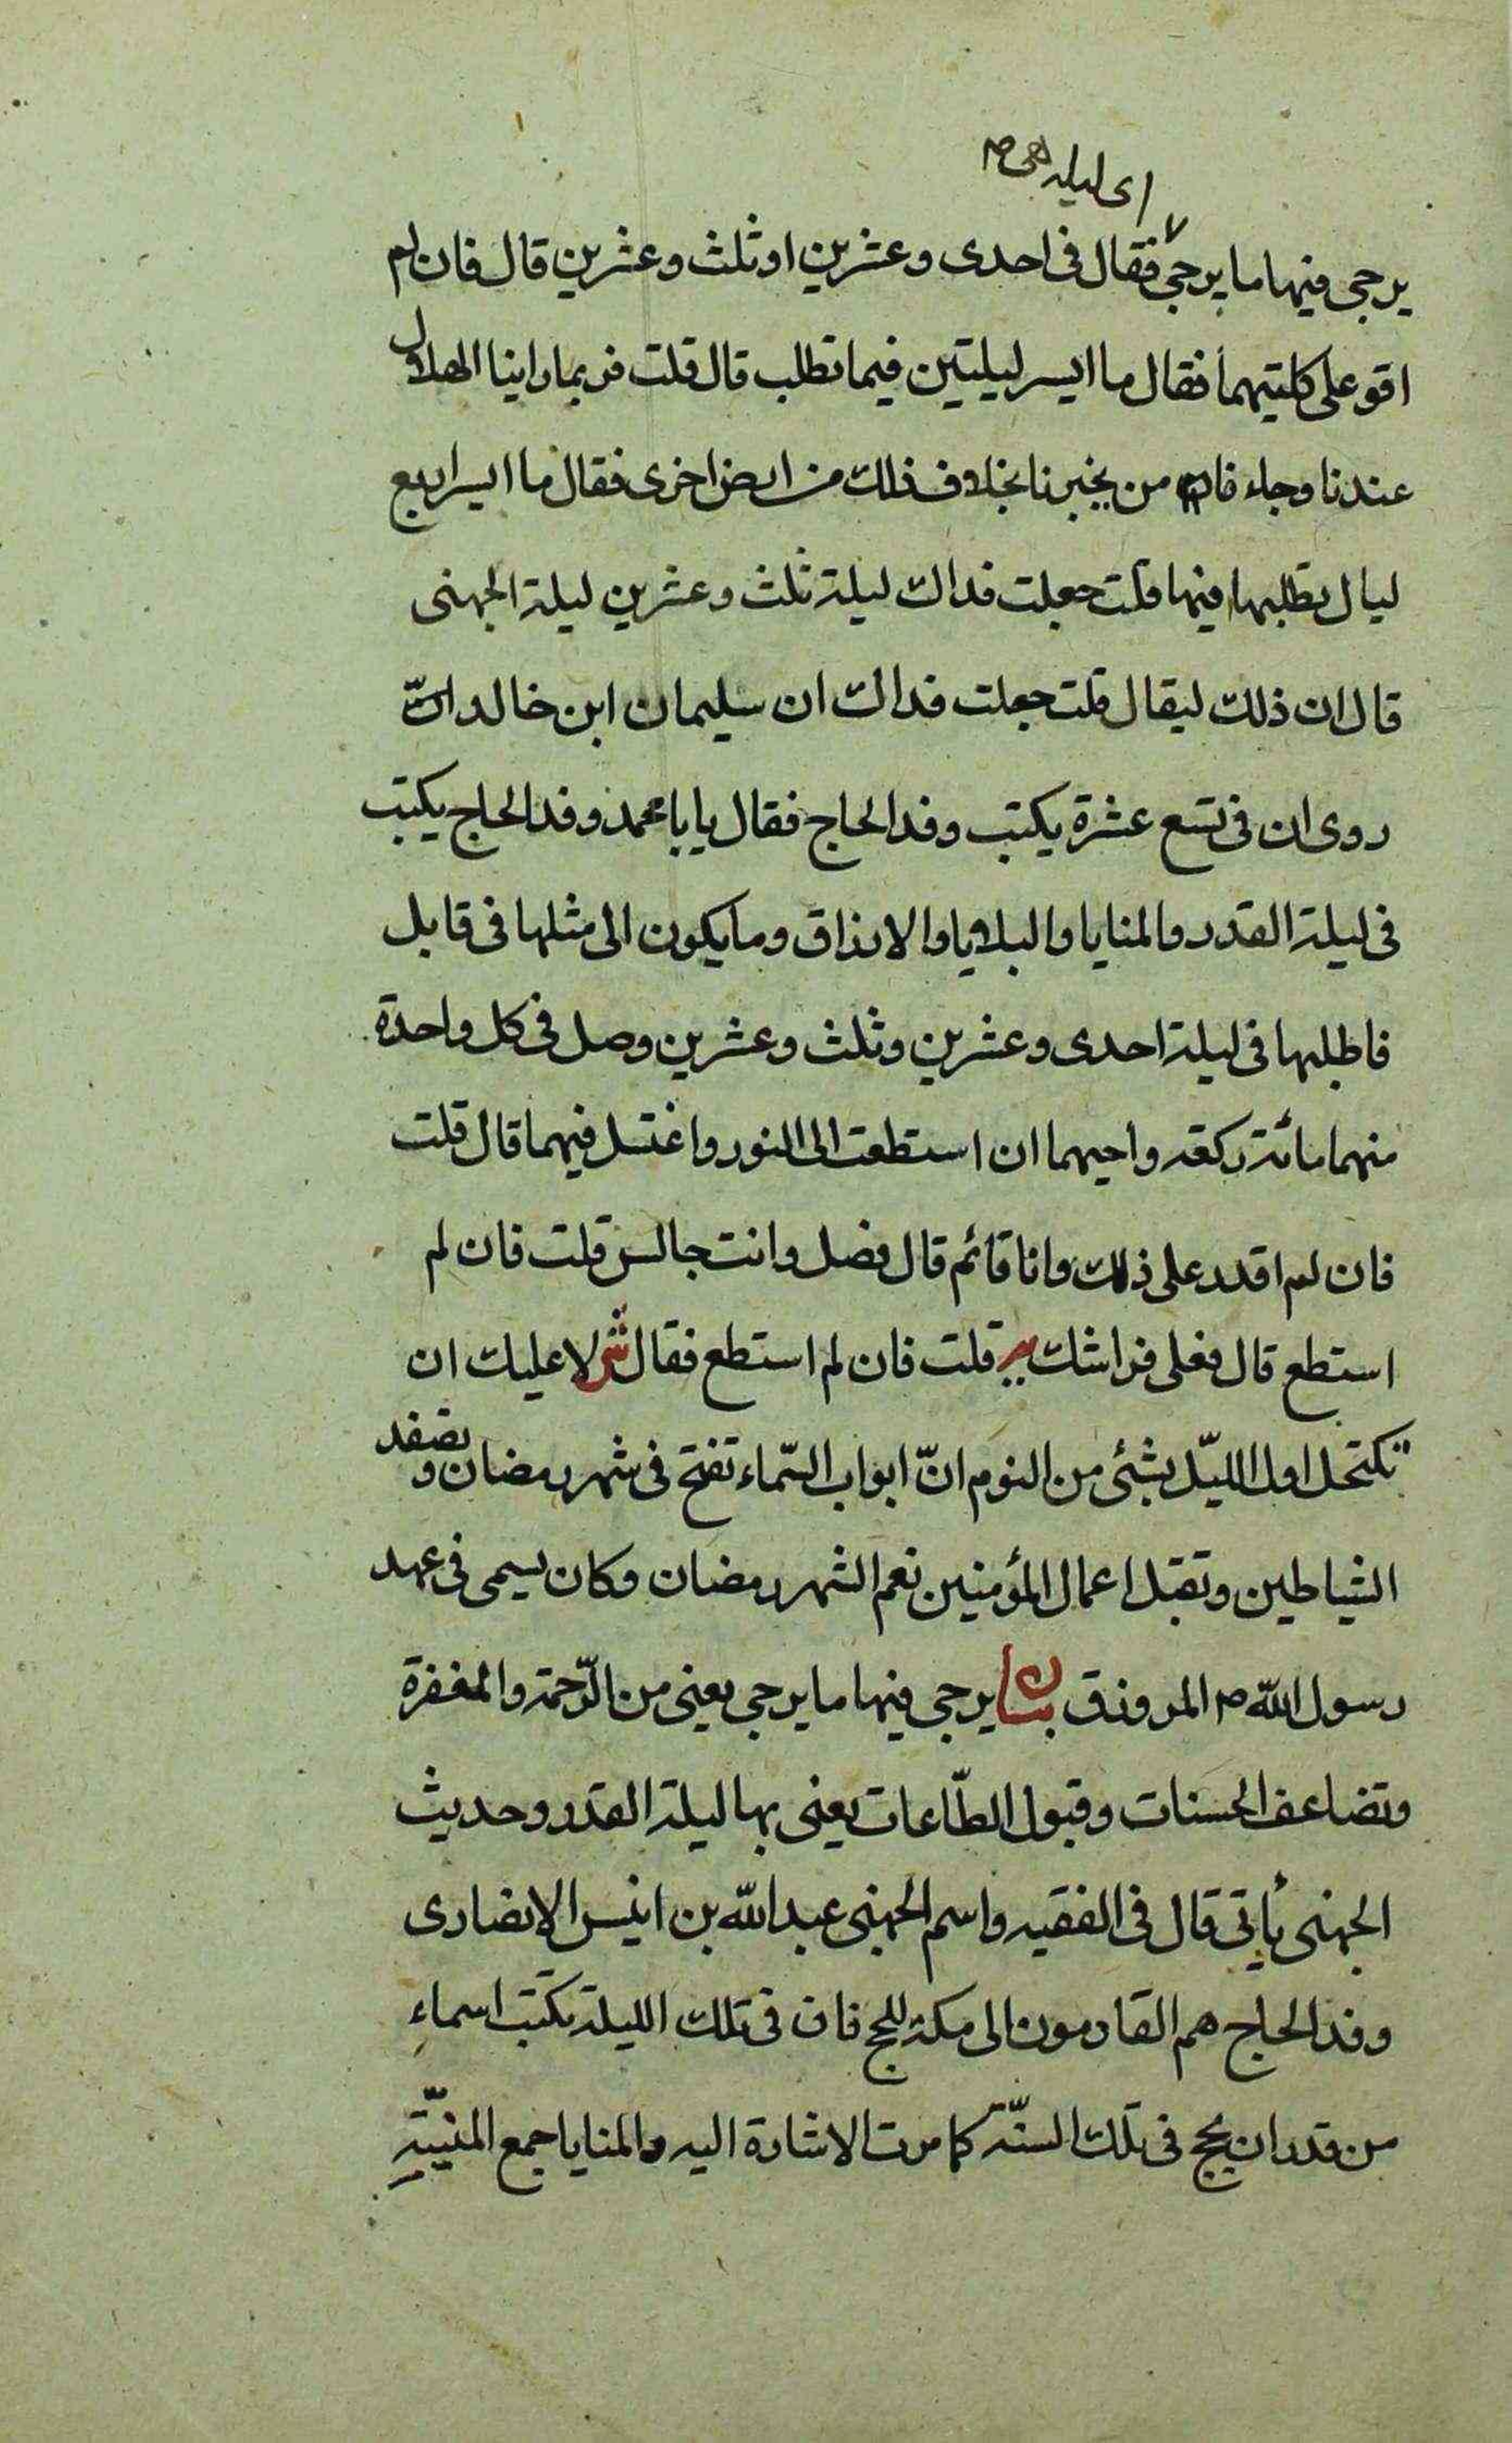 اى ليله هى
يرجى فيها ما يرجى فقال فى احدى وعشرين او ثلث وعشرين قال فان لم
اقو على كلتيهما فقال ما ايسر ليلتين فيما تطلب قال قلت فربما راينا الهلال
عندنا وجاء من يخبرنا بخلاف ذلك من ارض اخرى فقال ما ايسر اربع
ليال تطلبها فيها قلت جعلت فداك ليلة ثلث وعشرين ليلة الجهنى
قال ان ذلك ليقال قلت جعلت فداك ان سليمان ابن خالد
روى ان فى تسع عشرة يكتب وفد الحاج فقال يا با محمد وفد الحاج يكتب
فى ليلة القدر والمنايا والبلايا والارزاق وما يكون الى مثلها فى قابل
فاطلبها فى ليلة احدى وعشرين وثلث وعشرين وصل فى كل واحدة
منهما مائة ركعة واحيهما ان استطعت الى النور واغتسل فيهما قال قلت
فان لم اقدر على ذلك وانا قائم قال فصل وانت جالس قلت فان لم
استطع قال فعلى فراشك قلت فان لم استطع فقال لا عليك ان
تكتحل اول الليّل بشئى من النوم انّ ابواب السّماء تفتح فى شهر رمضان وتصفد
الشياطين وتقبل اعمال المؤمنين نعم الشهر رمضان وكان يسمى فى عهد
رسول الله ص المرزوق بيان يرجى فيها ما يرجى يعنى من الرّحمة والمغفرة
وتضاعف الحسنات وقبول الطّاعات يعنى بها ليلة القدر وحديث
الجهنى يأتى قال فى الفقيه واسم الجهنى عبد الله بن انيس الانصارى
وفد الحاج هم القادمون الى مكة للحج فان فى تلك الليلة تكتب اسماء
من قدر ان يحج فى تلك السنّة كما مرت الاشارة اليه والمنايا جمع المنيّة